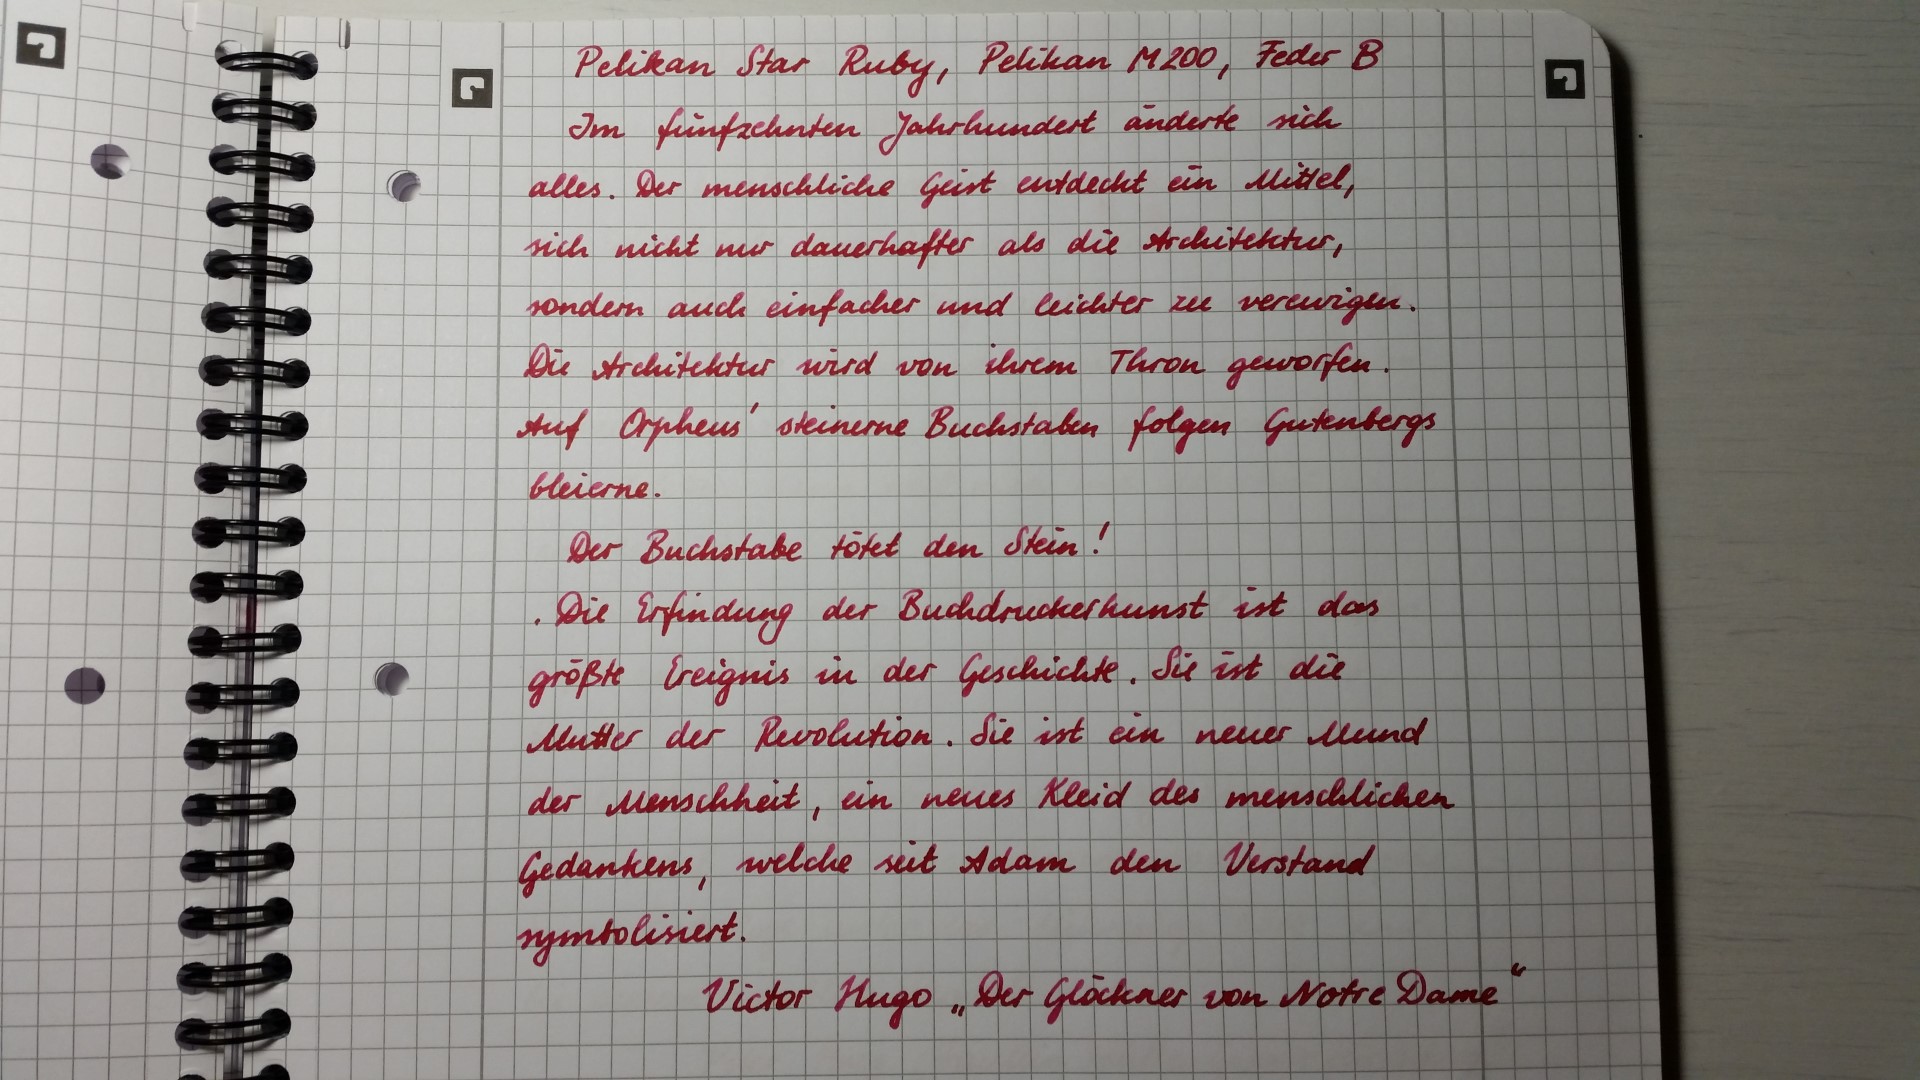 Pelikan Star Ruby, Pelikan M200, Feder B
Im fünfzehnten Jahrhundert änderte sich
alles. Der menschliche Geist entdeckt ein Mittel,
sich nicht nur dauerhafter als die Architektur,
sondern auch einfacher und leichter zu verewigen.
Die Architektur wird von ihrem Thron geworfen.
Auf Orpheus' steinerne Buchstaben folgen Gutenbergs
bleierne.
Der Buchstabe tötet den Stein!
. Die Erfindung der Buchdruckerkunst ist das
größte Ereignis in der Geschichte. Sie ist die
Mutter der Revolution. Sie ist ein neuer Mund
der Menschheit, ein neues Kleid des menschlichen
Gedankens, welche seit Adam den Verstand
symbolisiert.
Victor Hugo „Der Glöckner von Notre Dame“